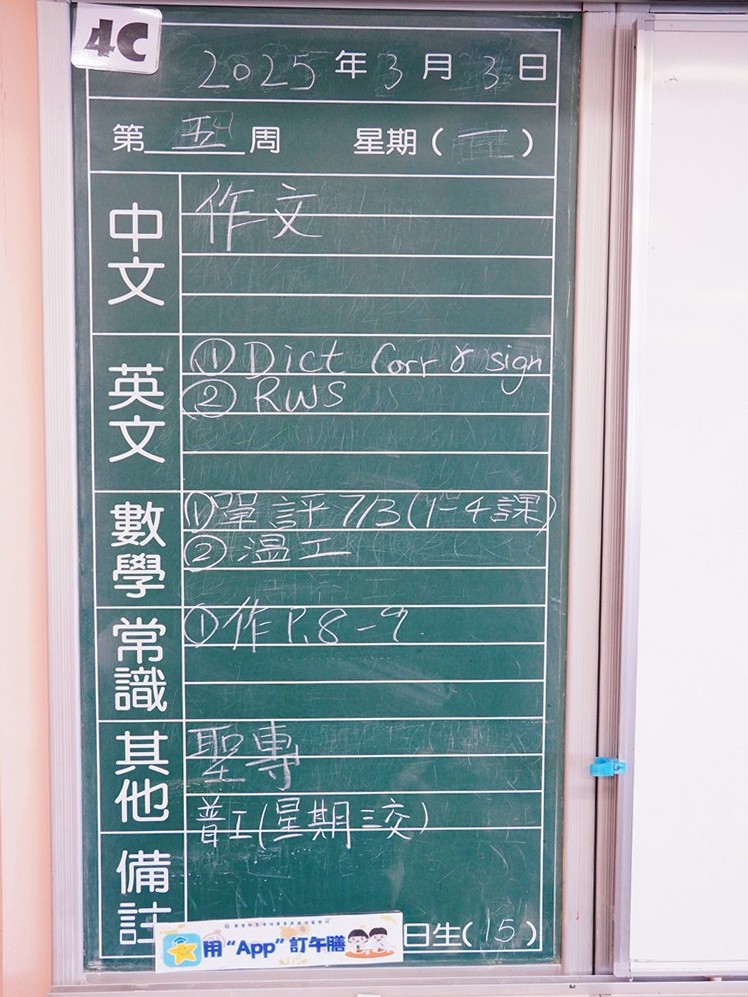 4C
2025年3月3日
第五周 星期(一)
中文 作文
英文 ① Dict Corr & sign
② RWS
數學 ①單評7/3(1-4課)
②温工
常識 ①作P.8-9
其他 聖專
普工(星期三交)
備註
用“App”訂午膳 日生(15)